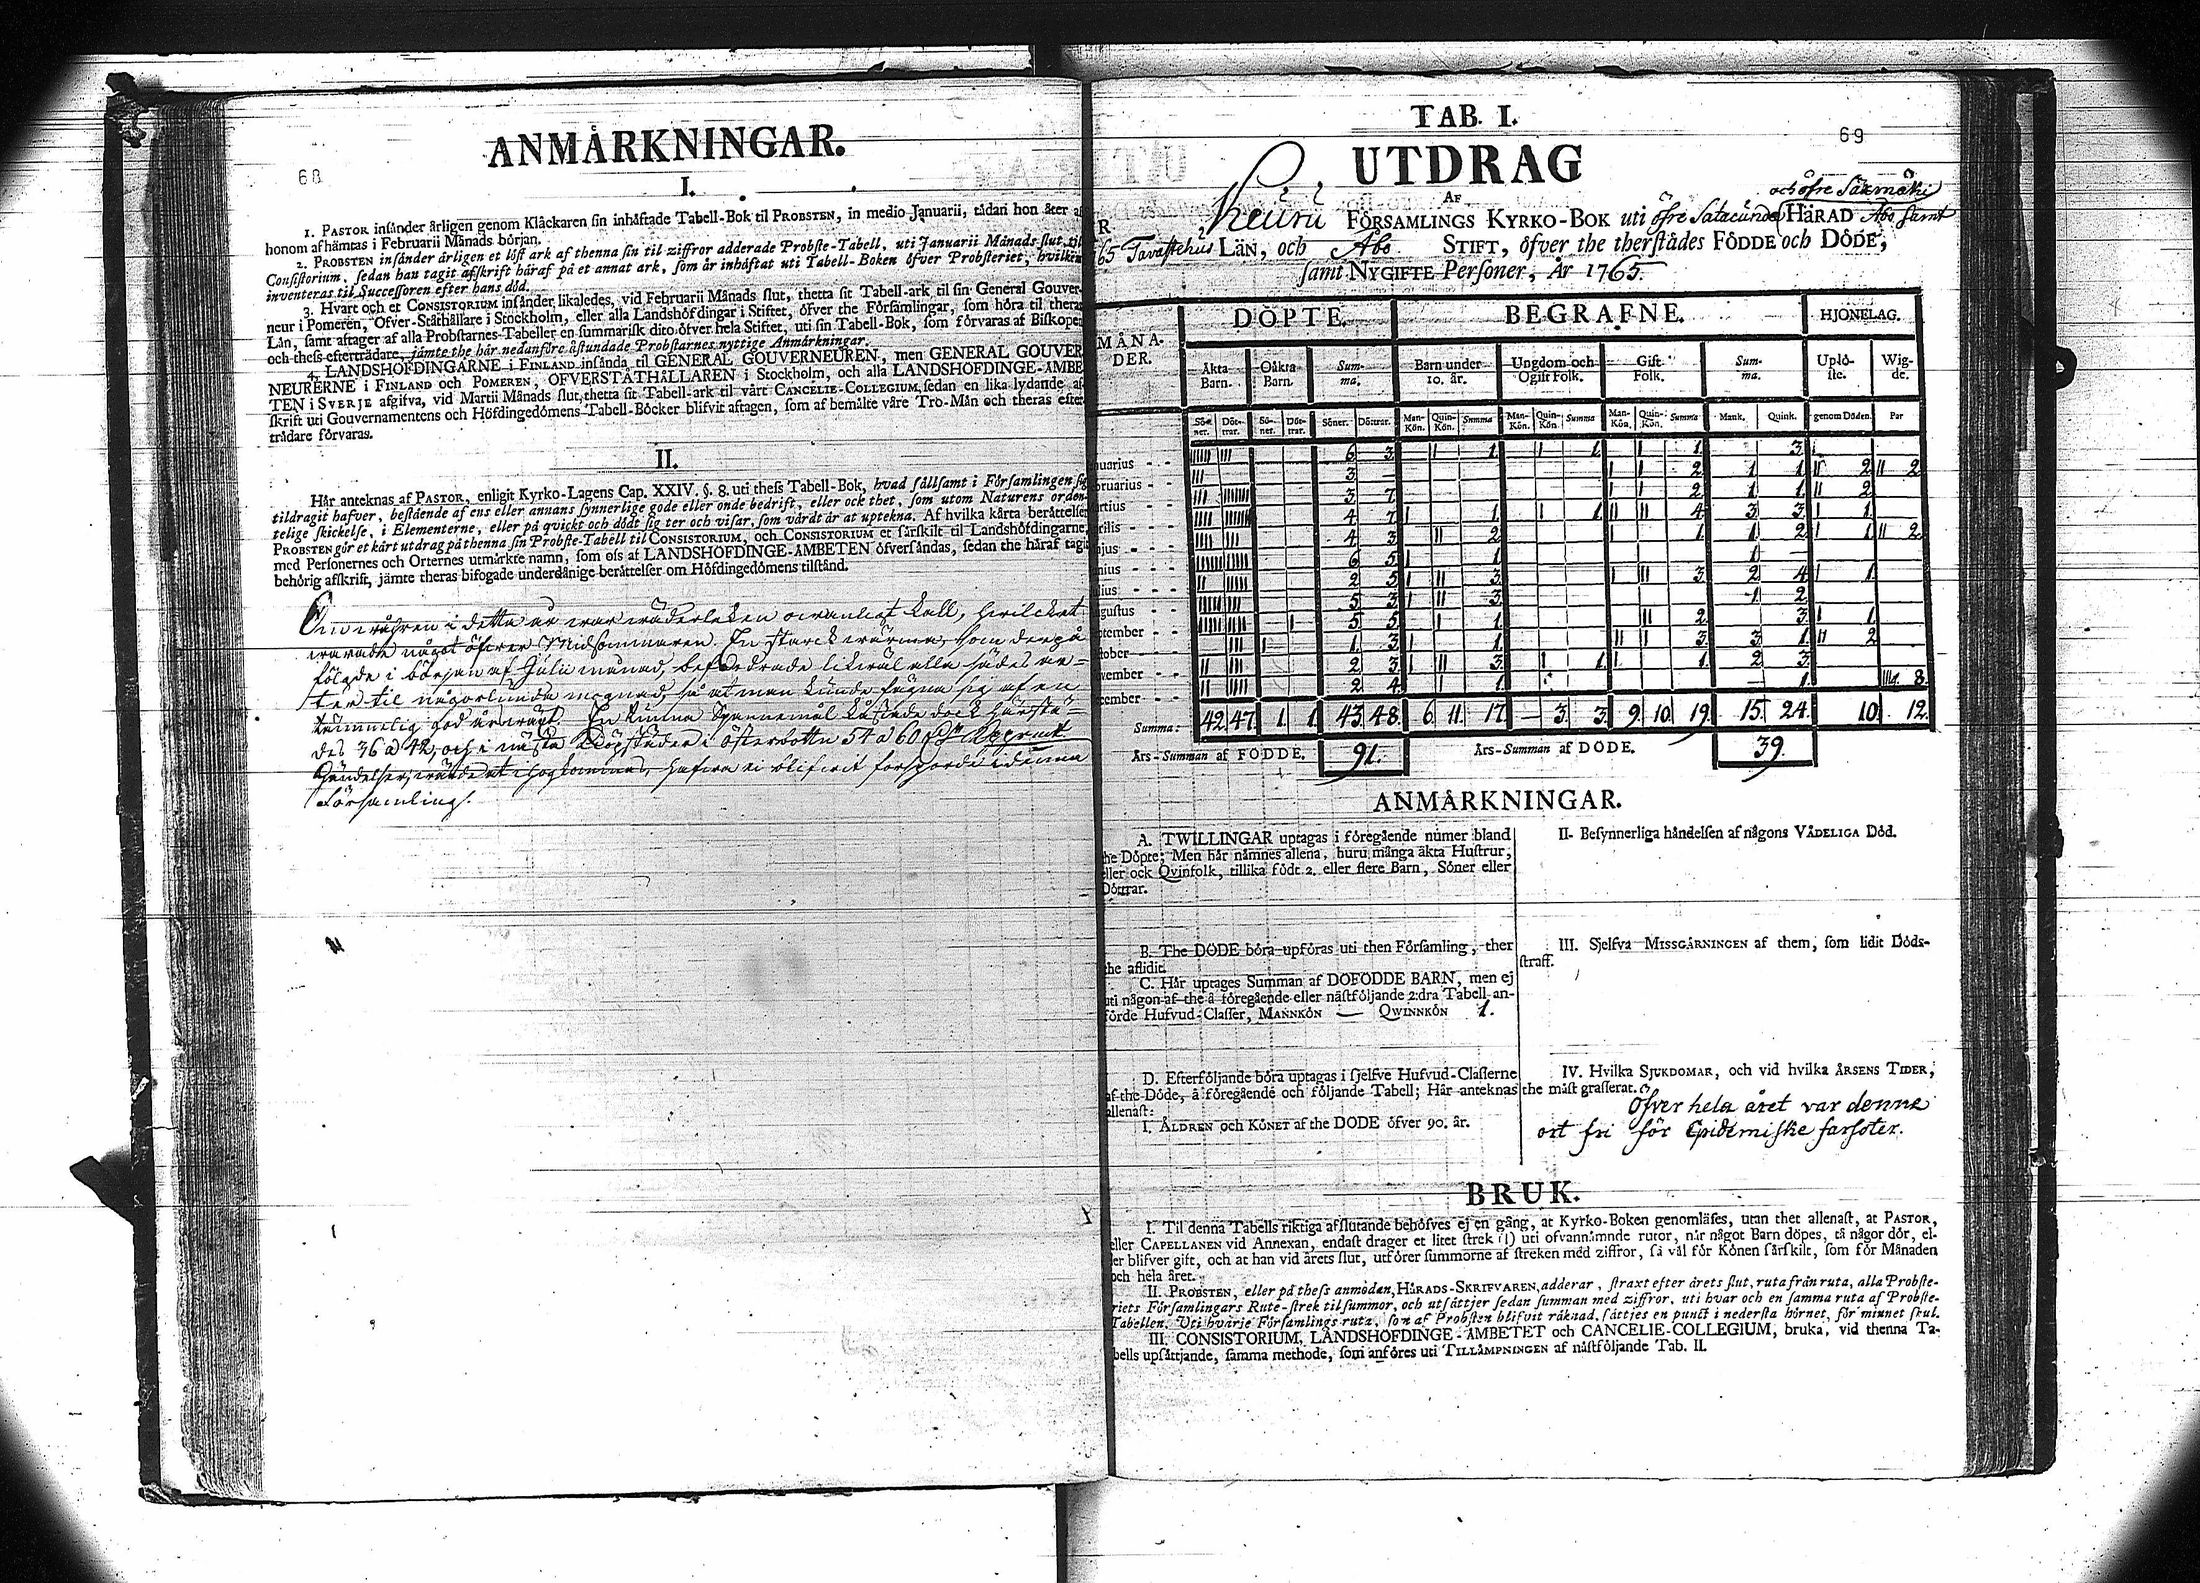 68
ANMÄRKNINGAR.
I.
1. PASTOR insänder årligen genom Klåckaren sin inhäftade Tabell-Bok til PROBSTEN, in medio Januarii, tädan hon åter af
honom afhämtas i Februarii Månads början.
2. PROBSTEN insänder årligen et löst ark af thenna sin til ziffror adderade Probste-Tabell, uti Januarii Månads slut, til
Consistorium, sedan han tagit afskrift häraf på et annat ark, som är inhäftat uti Tabell-Boken öfver Probsteriet, hvilken
inventeras til Successoren efter hans död.
3. Hvart och et CONSISTORIUM insänder likaledes, vid Februarii Månads slut, thetta sit Tabell-ark til sin General Gouver-
neur i Pomeren, Öfver-Ståthållare i Stockholm, eller alla Landshöfdingar i Stiftet, öfver the Församlingar, som höra til theras
Län, samt aftager af alla Probstarnes-Tabeller en summarisk dito öfver hela Stiftet, uti sin Tabell-Bok, som förvaras af Biskopen
och thess efterträdare, jämte the här nedanföre åstundade Probstarnes nyttige Anmärkningar.
4. LANDSHÖFDINGARNE i FINLAND insända til GENERAL GOUVERNEUREN, men GENERAL GOUVER-
NEURERNE i FINLAND och POMEREN, ÖFVERSTÅTHÅLLAREN i Stockholm, och alla LANDSHÖFDINGE-ÄMBE-
TEN i SVERJE afgifva, vid Martii Månads slut, thetta sit Tabell-ark til vårt CANCELIE-COLLEGIUM, sedan en lika lydande af-
skrift uti Gouvernamentens och Höfdingedömens Tabell-Böcker blifvit aftagen, som af bemälte våre Tro-Män och theras efter-
trädare förvaras.
II.
Här anteknas af PASTOR, enligit Kyrko-Lagens Cap. XXIV. §. 8. uti thess Tabell-Bok, hvad sällsamt i Församlingen sig
tildragit hafver, bestående af ens eller annans synnerlige gode eller onde bedrift, eller ock thet, som utom Naturens orden-
telige skickelse, i Elementerne, eller på qvickt och dödt sig ter och visar, som värdt är at uptekna. Af hvilka korta berättelser
PROBSTEN gör et kårt utdrag på thenna sin Probste-Tabell til CONSISTORIUM, och CONSISTORIUM et särskilt til Landshöfdingarne,
med Personernes och Orternes utmärkte namn, som oss af LANDSHÖFDINGE-ÄMBETEN öfversändas, sedan the häraf tagit
behörig afskrift, jämte theras bifogade underdånige berättelser om Höfdingedömens tilstånd.
Om wåhren i detta år war wäderleken owanligt kall, hwilcket
warade något öfwer Midsommaren. En starck wärma, som derpå
fölgde i början af Julii månad, befordrade likwäl alla sädes ar=
ter til någorlunda mognad, så at man kunde fägna sig af en
temmelig god årswäxt. En tunna Spannemål kåstade dock härstä=
des 36 a 42, och i näste Köpstäder i Österbotten 54 a 60
Händelser, wärde at ihogkommas, hafwa ei blifwit försporde i denna
Församling.
69
TAB. I.
UTDRAG
AF
och öfre Säxmäki
Keuru FÖRSAMLINGS KYRKO-BOK uti öfre Satacunda HÄRAD Åbo samt
Tavastehus LÄN, och Åbo STIFT, öfver the therstädes FÖDDE och DÖDE,
samt NYGIFTE Personer, År 1765.
MÅNA-DER. DÖPTE. BEGRAFNE. HJONELAG.
Äkta Barn. Oäkta Barn. Summa. Barn under 10. år. Ungdom och Ogift Folk. Gift Folk. Summa. Uplöste. Wigde.
Söner. Döttrar. Söner. Döttrar. Söner. Döttrar. Man-Kön. Quin-Kön. Summa Man-Kön. Quin-Kön. Summa Man-Kön. Quin-Kön. Summa Mank. Quink. genom Döden. Par
nuarius - - 6 3 1 1 1 3
bruarius - - 3 2 1 1 2 2
rtius - - 3 7 2 1 1 2
rilis - - 4 7 1 1 4 3 3 1
jus - - 4 3 2 1 1 2 1 2
nius - - 6 5 1 1
lius - - 2 5 3 3 2 4 1
gustus - - 5 3 3 1 2
ptember - - 5 5 1 2 3 1
tober - - 1 3 1 3 3 1 2
vember - - 2 3 3 1 1 2 3
cember - - 2 4 1 1 8
Summa: 42 47 1 1 43 48 6 11 17 — 3 3 9 10 19 15 24 10 12
Års-Summan af FÖDDE. 91. Års-Summan af DÖDE. 39.
ANMÄRKNINGAR.
A. TWILLINGAR uptagas i föregående numer bland
he Döpte; Men här nämnes allena, huru många äkta Hustrur,
ller ock Qvinfolk, tillika födt 2. eller flere Barn, Söner eller
Döttrar.
B. The DÖDE böra upföras uti then Församling, ther
the aflidit.
C. Här uptages Summan af DÖFÖDDE BARN, men ej
uti någon af the å föregående eller nästföljande 2:dra Tabell an-
förde Hufvud-Classer, MANNKÖN — QWINNKÖN 1.
D. Efterföljande böra uptagas i sjelfve Hufvud-Classerne
af the Döde, å föregående och följande Tabell; Här anteknas
allenast:
I. ÅLDREN och KÖNET af the DÖDE öfver 90. år.
II. Besynnerliga händelsen af någons VÅDELIGA Död.
III. Sjelfva MISSGÄRNINGEN af them, som lidit Döds-
straff.
IV. Hvilka SJUKDOMAR, och vid hvilka ÅRSENS TIDER,
the mäst grasserat.
Öfver hela året var denne
ort fri för Epidemiske farsoter.
BRUK.
I. Til denna Tabells riktiga afslutande behöfves ej en gång, at Kyrko-Boken genomläses, utan thet allenast, at PASTOR,
eller CAPELLANEN vid Annexan, endast drager et litet strek (1) uti ofvannämnde rutor, när något Barn döpes, tå någor dör, el-
ler blifver gift, och at han vid årets slut, utförer summorne af streken med ziffror, så väl för Könen särskilt, som för Månaden
och hela året.
II. PROBSTEN, eller på thess anmodan, HÄRADS-SKRIFVAREN, adderar, straxt efter årets slut, ruta från ruta, alla Probste-
riets Församlingars Rute-strek til summor, och utsättjer sedan summan med ziffror, uti hvar och en samma ruta af Probste-
Tabellen. Uti hvarje Församlings ruta, som af Probsten blifvit räknad, sättjes en punct i nedersta hörnet, för minnet skul.
III. CONSISTORIUM, LANDSHÖFDINGE-ÄMBETET och CANCELIE-COLLEGIUM, bruka, vid thenna Ta-
bells upsättjande, samma methode, som anföres uti TILLÄMPNINGEN af nästföljande Tab. II.